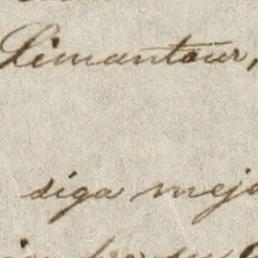 Limantour,
siga mejo